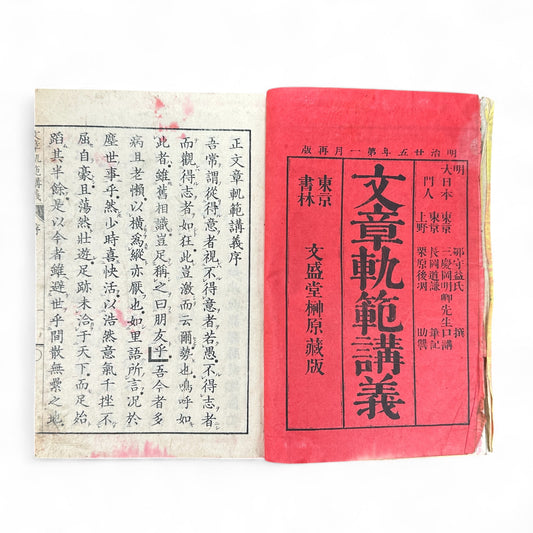 明治廿五年第一月再版
明 鄒守益氏 撰
大日本 東京 三慶岡明卿先生口講
門人 東京 長岡道謙 筆記
上野 栗原後凋 助讐
文章軌範講義
東京
書林
文盛堂榊原藏版
正文章軌範講義序
吾常謂從得意者視不得意者若愚不得志者
而觀得志者如狂此豈激而云爾勢也嗚呼如
此者雖舊相識豈足稱之曰朋友乎吾今者多
病且老懶以橫爲縱亦厭也如里語所言况於
塵世事乎然少時喜快活以浩然意氣千挫不
屈自豪且蕩然壯遊足跡未洽于天下而足始
蹈其半餘是以今者雖避世乎閒散無景之地
文章軌範講義 序